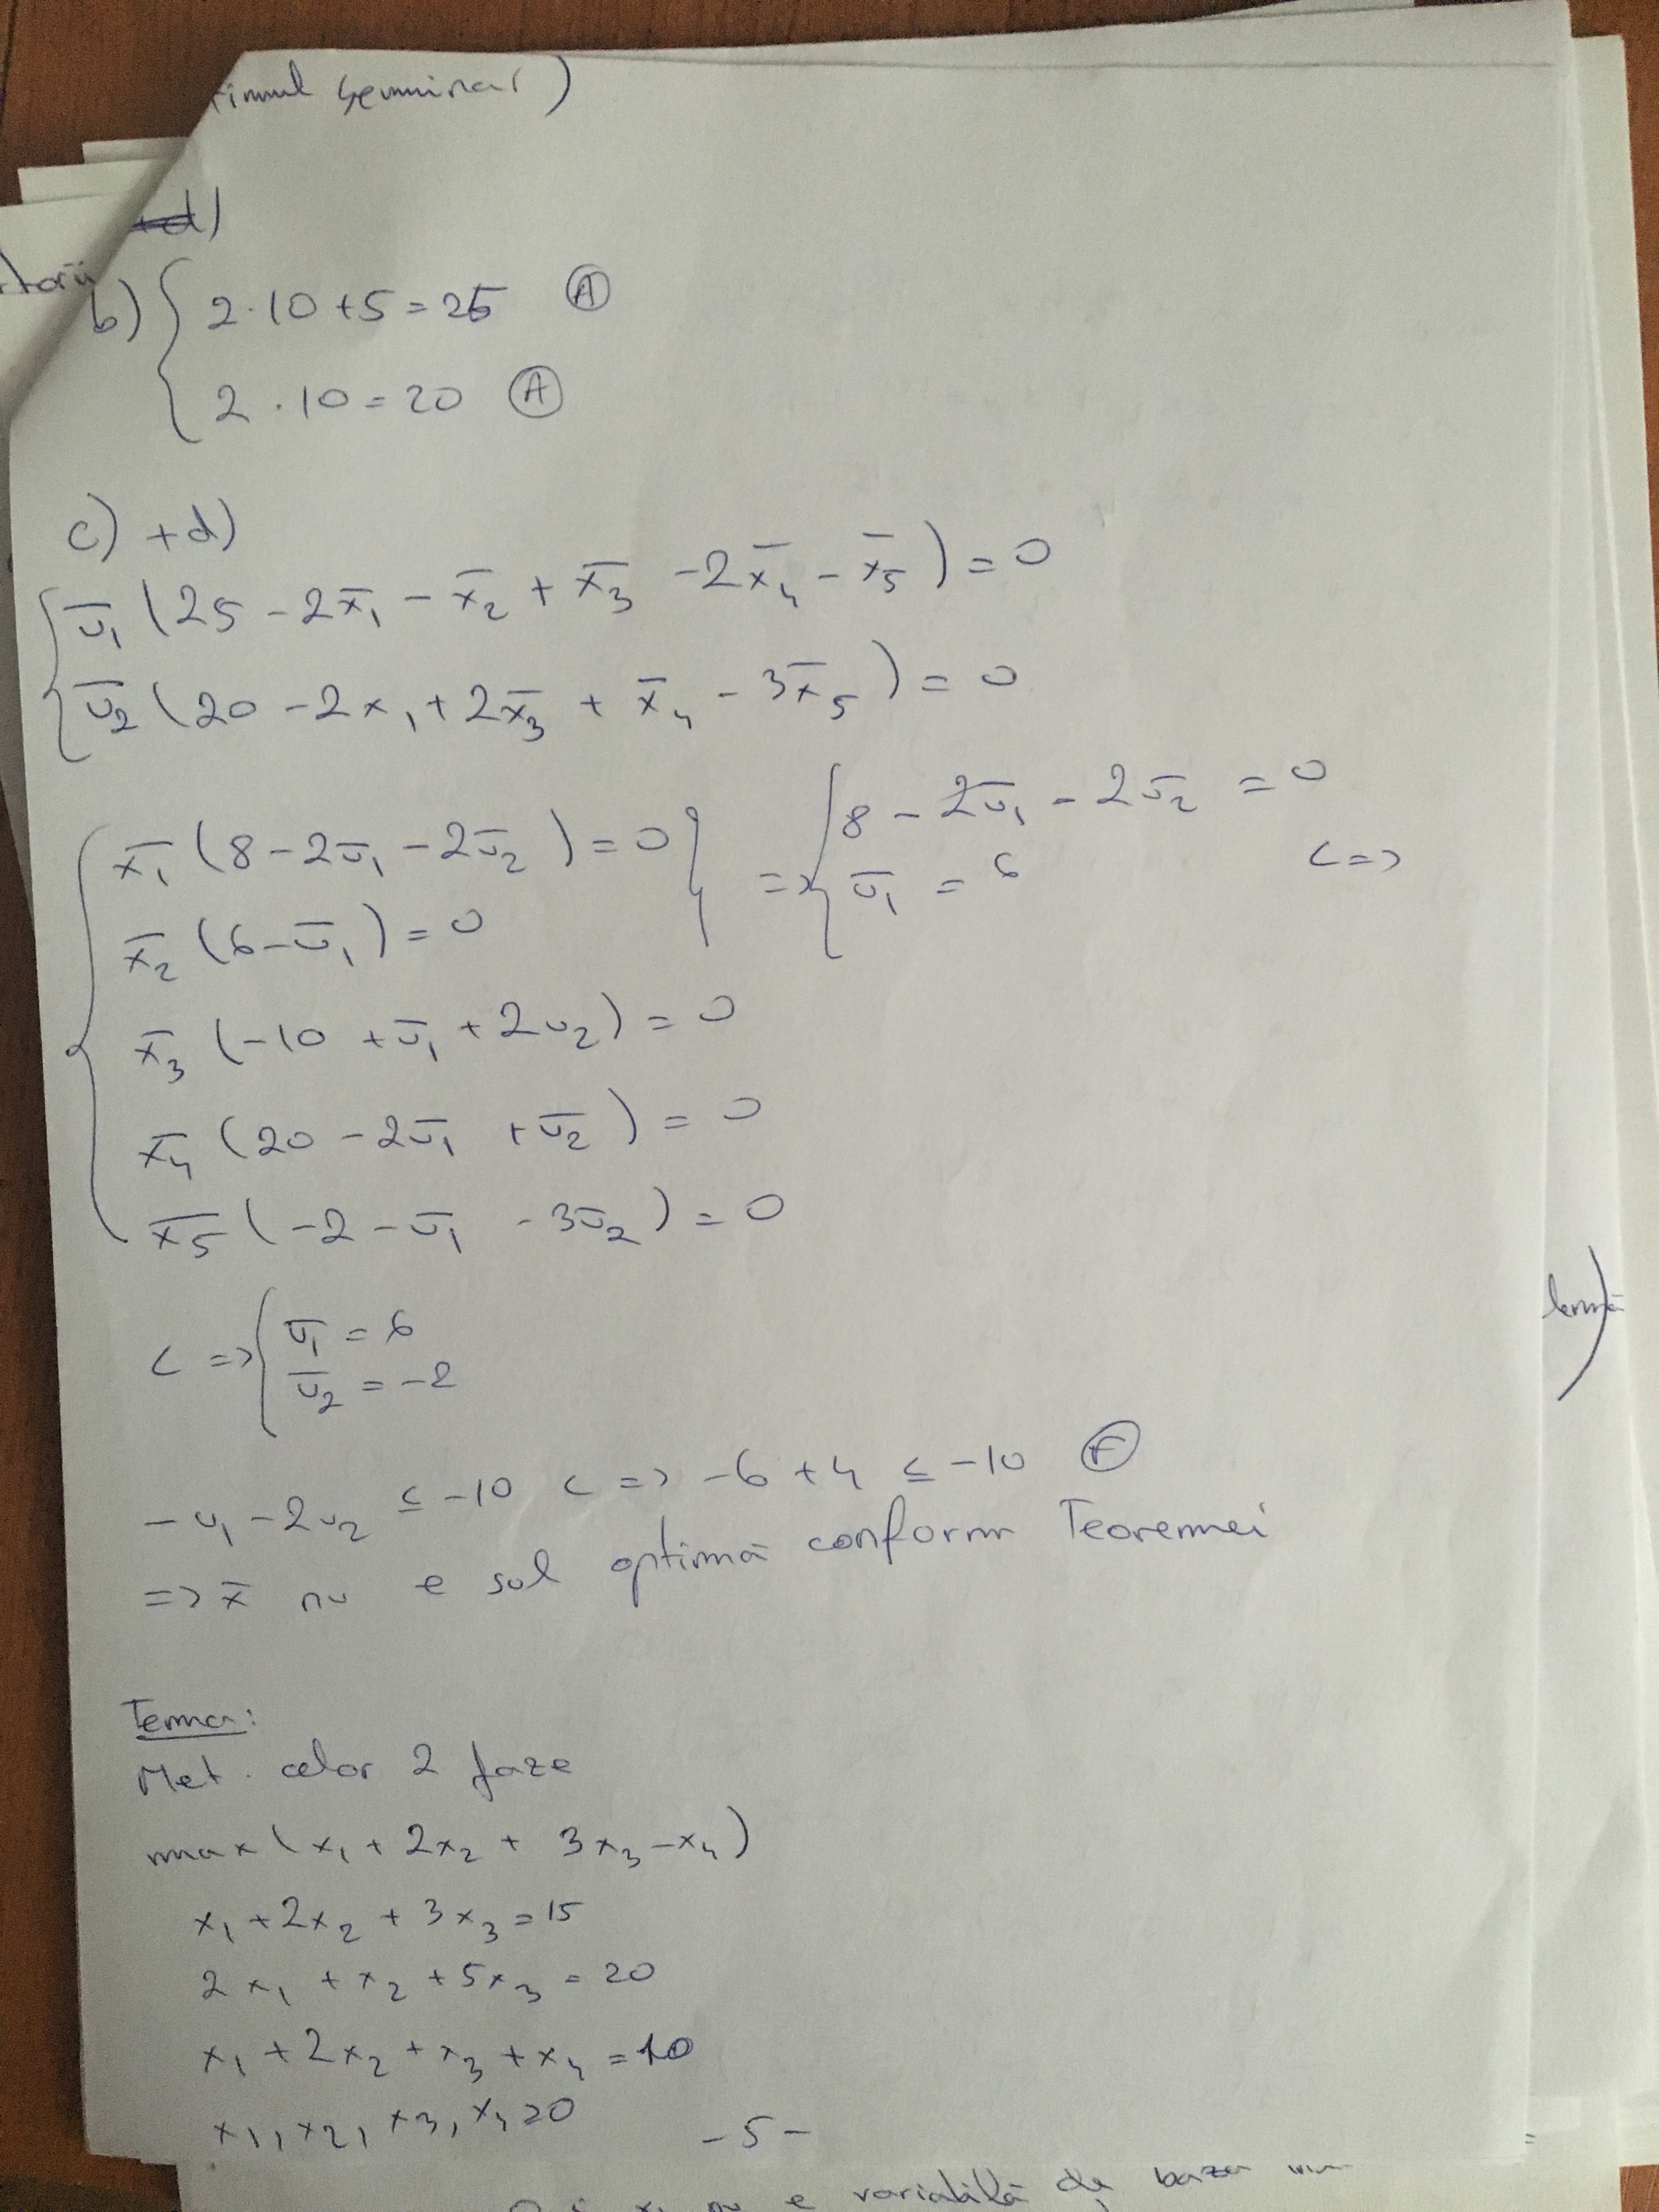 seminar)
b) { 2·10+5=25 (A)
2·10=20 (A)
c) +d)
{ ū₁ (25 - 2x̄₁ - x̄₂ + x̄₃ - 2x̄₄ - x̄₅) = 0
ū₂ (20 - 2x₁ + 2x̄₃ + x̄₄ - 3x̄₅) = 0
{ x̄₁ (8 - 2ū₁ - 2ū₂) = 0 } => { 8 - 2ū₁ - 2ū₂ = 0
x̄₂ (6 - ū₁) = 0 ū₁ = 6 <=>
x̄₃ (-10 + ū₁ + 2u₂) = 0
x̄₄ (20 - 2ū₁ + ū₂) = 0
x̄₅ (-2 - ū₁ - 3ū₂) = 0
<=> { ū₁ = 6
ū₂ = -2
-u₁ - 2u₂ ≤ -10 <=> -6 + 4 ≤ -10 (F)
=> x̄ nu e sol optimă conform Teoremei
Tema:
Met. celor 2 faze
max (x₁ + 2x₂ + 3x₃ - x₄)
x₁ + 2x₂ + 3x₃ = 15
2x₁ + x₂ + 5x₃ = 20
x₁ + 2x₂ + x₃ + x₄ = 10
x₁, x₂, x₃, x₄ ≥ 0
-5-
nu e variabilă de baza